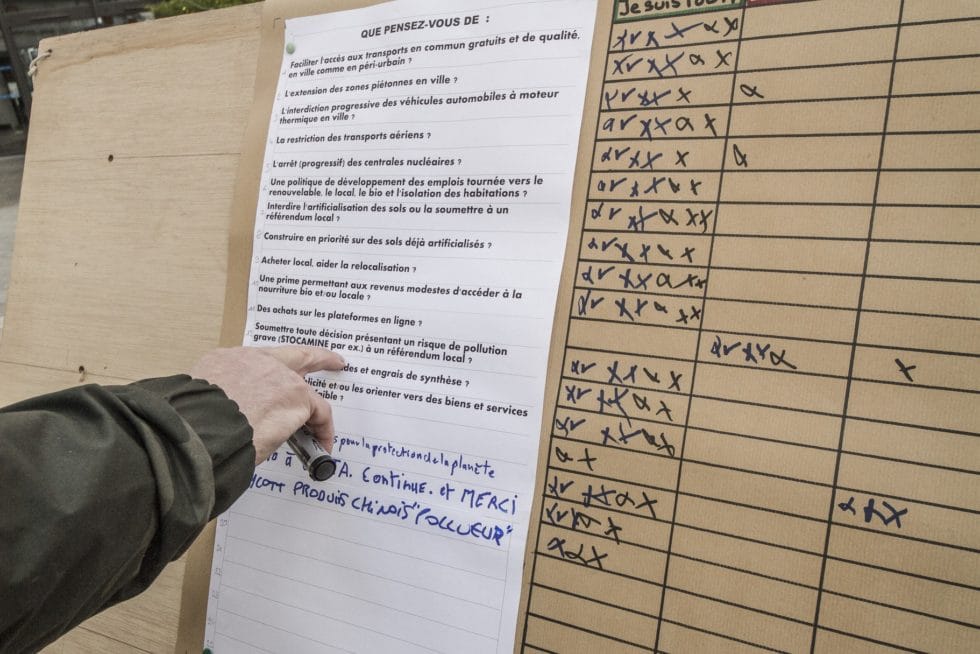 QUE PENSEZ-VOUS DE :
Faciliter l'accès aux transports en commun gratuits et de qualité,
en ville comme en péri-urbain ?
L'extension des zones piétonnes en ville ?
L'interdiction progressive des véhicules automobiles à moteur
thermique en ville ?
La restriction des transports aériens ?
L'arrêt (progressif) des centrales nucléaires ?
Une politique de développement des emplois tournée vers le
renouvelable, le local, le bio et l'isolation des habitations ?
Interdire l'artificialisation des sols ou la soumettre à un
référendum local ?
8 Construire en priorité sur des sols déjà artificialisés ?
Acheter local, aider la relocalisation ?
Une prime permettant aux revenus modestes d'accéder à la
nourriture bio et/ou locale ?
Des achats sur les plateformes en ligne ?
Soumettre toute décision présentant un risque de pollution
grave (STOCAMINE par ex.) à un référendum local ?
des et engrais de synthèse ?
licité et/ou les orienter vers des biens et services
ible ?
pour la protection de la planète
TA. Continue. et MERCI
COTT PRODUIS CHINOIS "POLLUEUR"
Je suis POUR